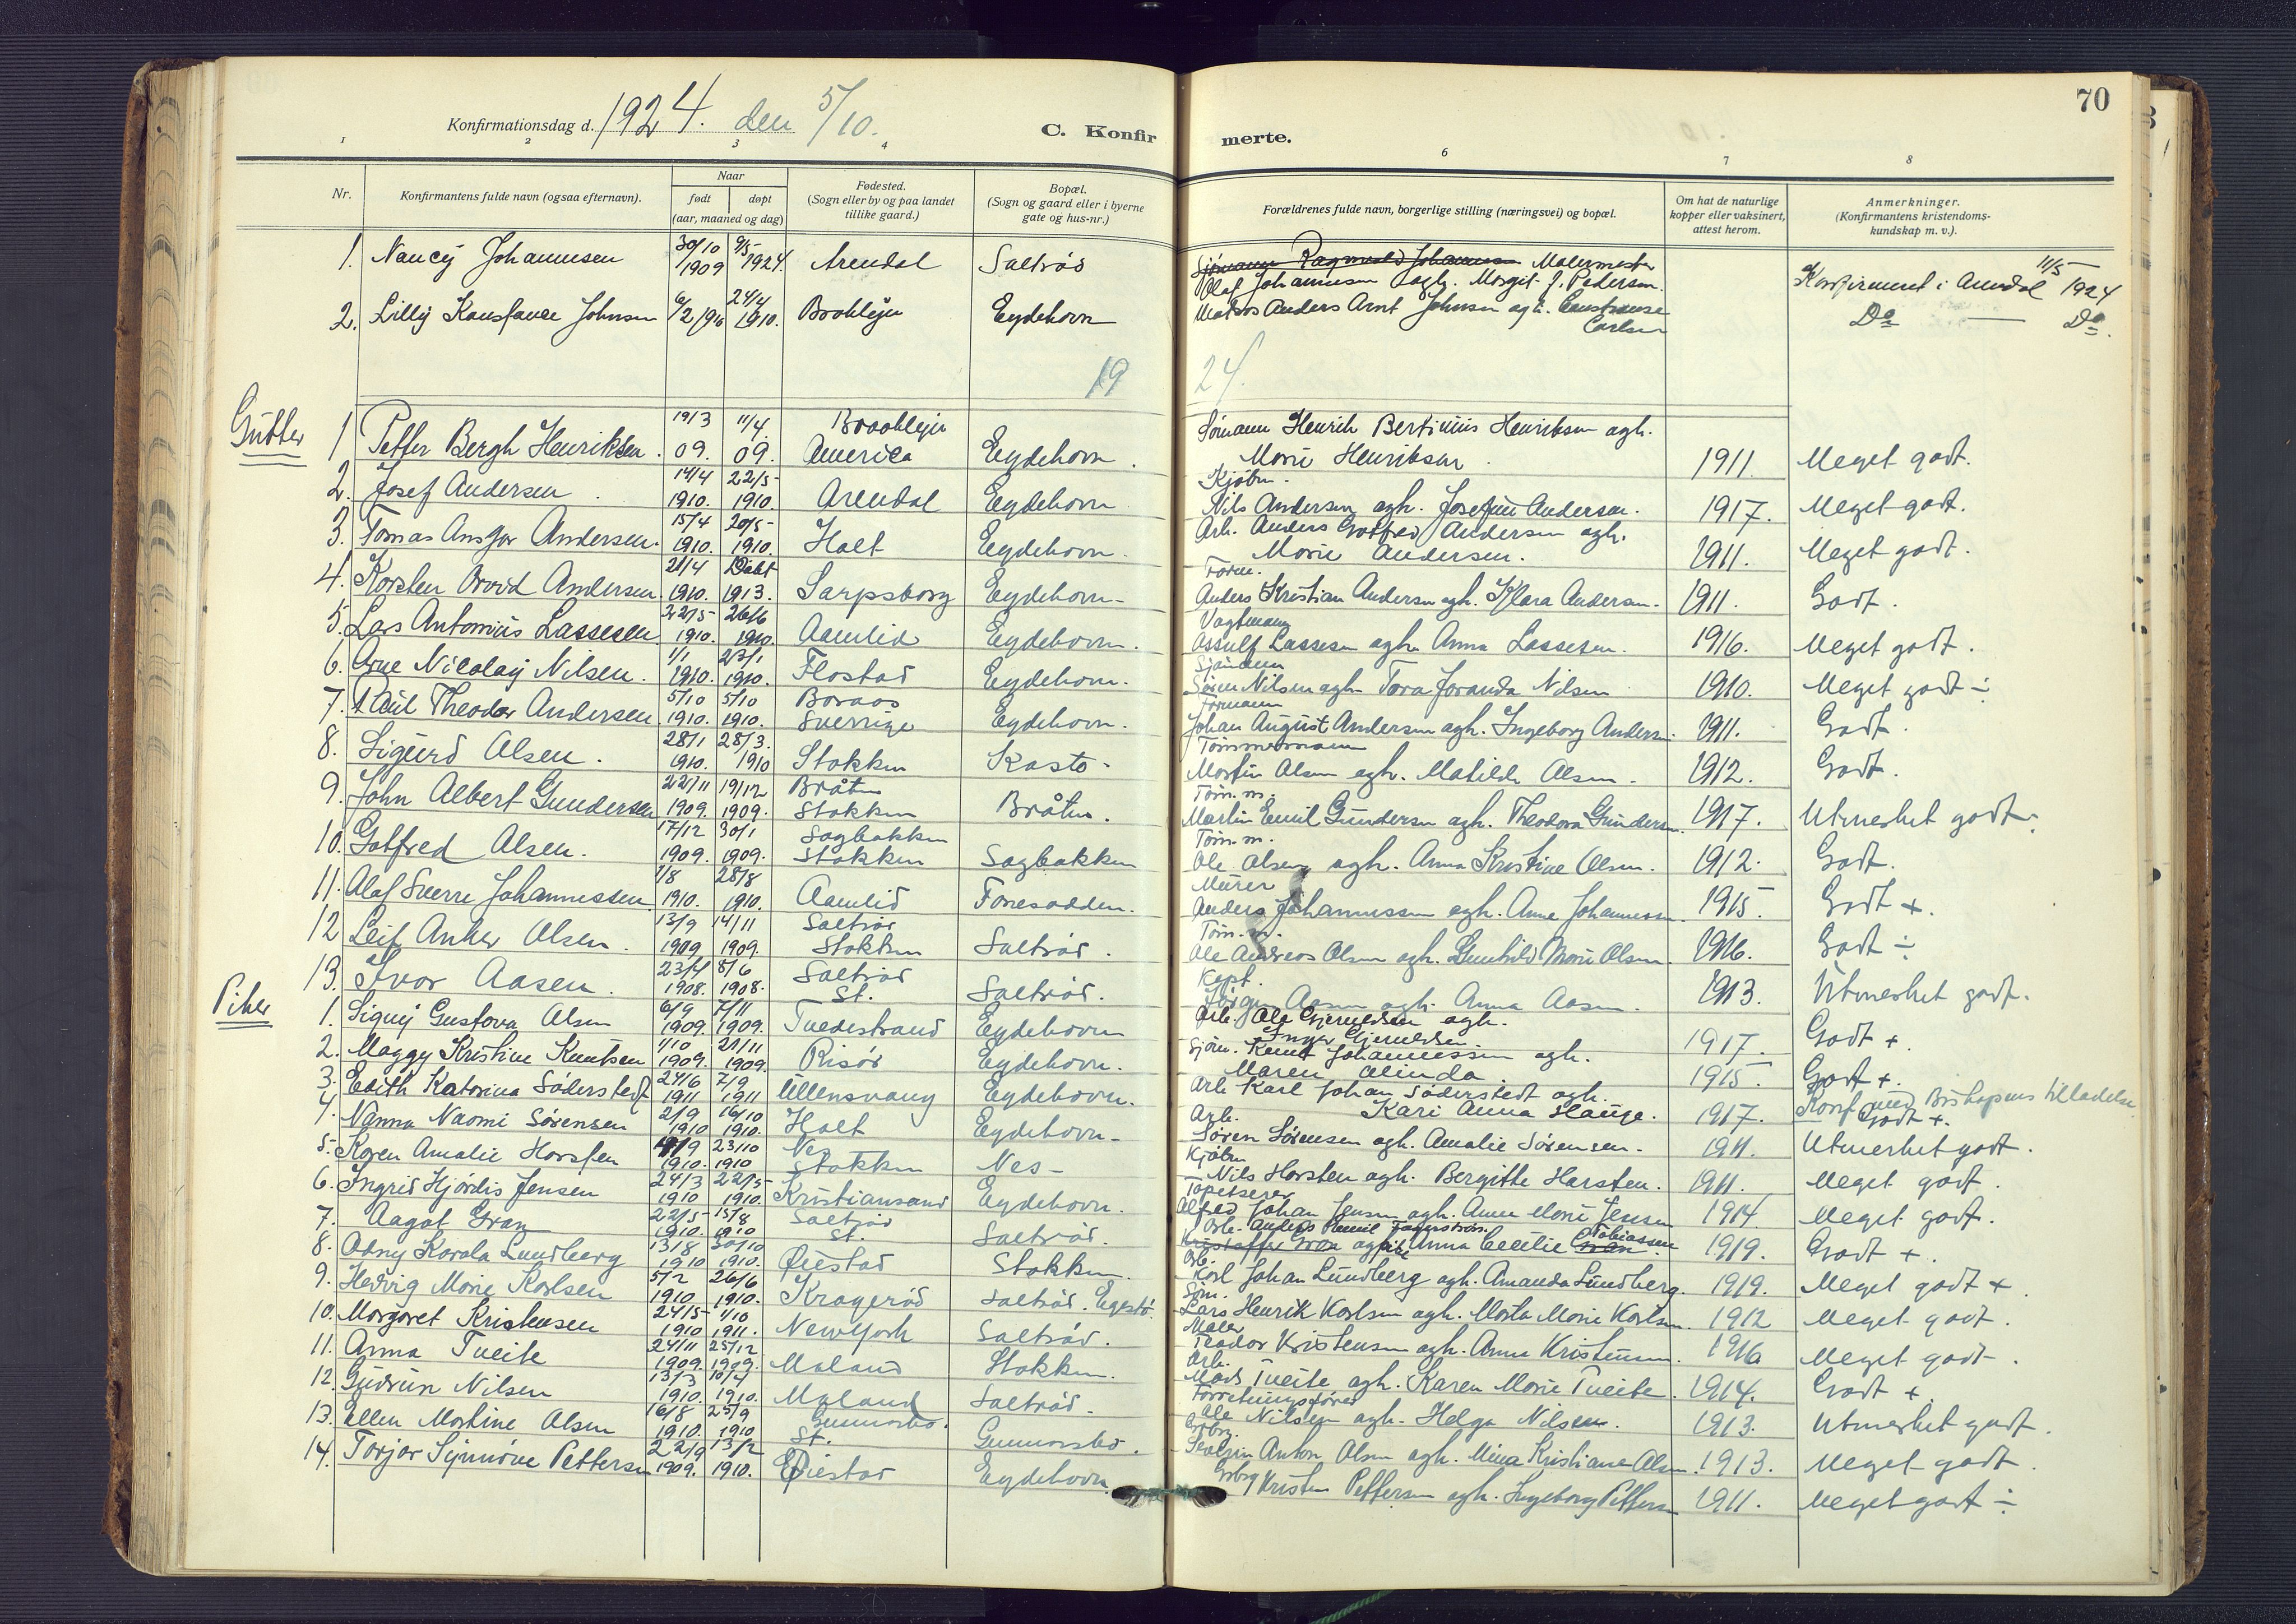 70
Konfirmationsdag d. 1924. den 5/10.
C. Konfirmerte.
1 2 3 4 6 7 8
Nr.
Konfirmantens fulde navn (ogsaa efternavn).
Naar
født
døpt
(aar, maaned og dag)
Fødested.
(Sogn eller by og paa landet
tillike gaard.)
Bopæl.
(Sogn og gaard eller i byerne
gate og hus-nr.)
Forældrenes fulde navn, borgerlige stilling (næringsvei) og bopæl.
Om hat de naturlige
kopper eller vaksinert,
attest herom.
Anmerkninger.
(Konfirmantens kristendoms-
kundskap m. v.).
1. Nancy Johannesen 30/10 1909 9/5 1924. Arendal Saltrød Sjømann Ragnvald Johannesen Malermester Olaf Johannesen og h. Margit J. Pedersen. Konfirmeret i Arendal 11/5 1924
2. Lilly Konstance Johnsen 6/2 1910 24/4 1910. Eydehavn Matros Anders Arnt Johnsen og h. Constanse Carlsen Do — Do.
19 24.
Gutter
1 Petter Bergh Henriksen. 19/3 09. 11/4 09. America Eydehavn. Sømann Henrik Bertinius Henriksen og h. Marie Henriksen. 1911. Meget godt.
2. Josef Andersen. 14/4 1910. 22/5 1910. Arendal Eydehavn Kjøbm. Nils Andersen og h. Josefine Andersen. 1917. Meget godt.
3. Tomas Ansgar Andersen. 15/4 1910. 20/5 1910. Holt Eydehavn. Arb. Anders Gotfred Andersen og h. Marie Andersen. 1911. Meget godt.
4. Karsten Arvid Andersen. 21/4 1910. Døbt 1913. Sarpsborg Eydehavn Form. Anders Kristian Andersen og h. Klara Andersen. 1911. Godt.
5. Lars Antonius Lassesen 22/5 1910. 26/6 1910. Aamlid Eydehavn. Vagtmann Assulf Lassesen og h. Anna Lassesen. 1916. Meget godt.
6. Arne Nicolay Nilsen. 1/1 1910. 23/1 1910. Flostad Eydehavn. Sjømann Søren Nilsen og h. Tora Joranda Nilsen 1910. Meget godt ÷
7. Paul Theodor Andersen. 5/10 1910. 5/10 1910. Boraas Sverrige Eydehavn. Formann Johan August Andersen og h. Ingeborg Andersen. 1911. Godt.
8. Sigurd Olsen. 28/1 1910. 28/3. 1910 Stokken Kastø. Tømmermann Martin Olsen og h. Matilde Olsen. 1912. Godt.
9. John Albert Gundersen 22/11 1909. 19/12 1909. Bråten Stokken Bråten. Tøm.m. Martin Emil Gundersen og h. Theodora Gundersen. 1917. Utmerket godt.
10. Gotfred Olsen. 17/12 1909. 30/1 1909. Sagbakken Stokken Sagbakken Tøm.m. Ole Olsen og h. Anna Kristine Olsen. 1912. Godt.
11. Olaf Sverre Johannessen. 1/8 1910. 28/8 1910. Aamlid Fonesodden. Murer Anders Johannessen og h. Anne Johannessen. 1915. Godt +.
12 Leif Anker Olsen. 13/9 1909 14/11 1909. Saltrød Stokken Saltrød. Tøm.m. Ole Andreas Olsen og h. Gunhild Marie Olsen. 1916. Godt ÷
13. Ivar Aasen. 23/4 1908. 8/6 1908. Saltrød St. Saltrød. Kapt. Jørgen Aasen og h. Anna Aasen. 1913. Utmerket godt.
Piker
1. Signy Gustava Olsen 6/9 1909. 7/11 1909. Tvedestrand Eydehavn Arb. Ole Gjeruldsen og h. Inger Gjeruldsen 1917. Godt +.
2. Maggy Kristine Knutsen 1/10 1909. 21/11 1909. Risør Eydehavn. Sjøm. Knut Johannessen og h. Maren Alinda. 1915. Godt +.
3. Edith Katarina Söderstedt 24/6 1911 7/9 1911 Ullensvang Eydehavn. Arb Karl Johan Söderstedt og h. Kari Anna Hauge. 1917. Konf. med Biskopens tilladelse Godt +.
4. Nanna Naomi Sørensen 2/9 1910 16/10 1910. Holt Eydehavn. Arb. Søren Sørensen og h. Amalie Sørensen. 1911. Utmerket godt.
5. Karen Amalie Harsten 1910. 23/10 1910 Nes Stokken Nes Kjøbm Nils Harsten og h. Bergitte Harsten. 1911. Meget godt.
6. Ingrid Hjørdis Jensen 24/3 1910 22/5 1910. Kristiansand Eydehavn. Tapetserer Alfred Johan Jensen og h. Anne Marie Jensen 1914 Meget godt.
7. Aagot Gran 22/5 1910. 15/8 1910 Saltrød St. Saltrød. Arb. Anders Emil Kristoffer Gran og Anna Cecilie Tobiassen Gran. 1919. Godt +.
8. Odny Karola Lundberg 13/8 1910 30/10 1910. Øiestad Stokken. Arb. Karl Johan Lundberg og h. Amanda Lundberg. 1919. Meget godt +.
9. Hedvig Marie Karlsen 5/2 1910 26/6 1910. Kragerød Saltrød. Egestø. Sjøm. Lars Henrik Karlsen og h. Marta Marie Karlsen. 1912 Meget godt.
10. Margaret Kristensen 24/5 1910 1/10 1911. New York Saltrød. Maler Teodor Kristensen og h. Anna Kristensen. 1916 Meget godt.
11. Anna Tveite 24/11 1909. 25/12 1909. Moland Stokken. Arb. Mads Tveite og h. Karen Marie Tveite. 1914. Godt +
12. Gudrun Nilsen 13/3 1910. 10/4 1910. Moland Saltrød. Forretningsfører Ole Nilsen og h. Helga Nilsen. 1913. Utmerket godt.
13. Ellen Martine Olsen 16/8 1910. 25/9 1910 Gunnarsbø. St. Gunnarsbø. Severin Anton Olsen og h. Mina Kristiane Olsen. 1913. Meget godt.
14. Torjor Synnøve Pettersen 22/9 1909. 13/2 1910. Øiestad Eydehavn. Kristen Pettersen og h. Ingeborg Pettersen 1911. Meget godt ÷